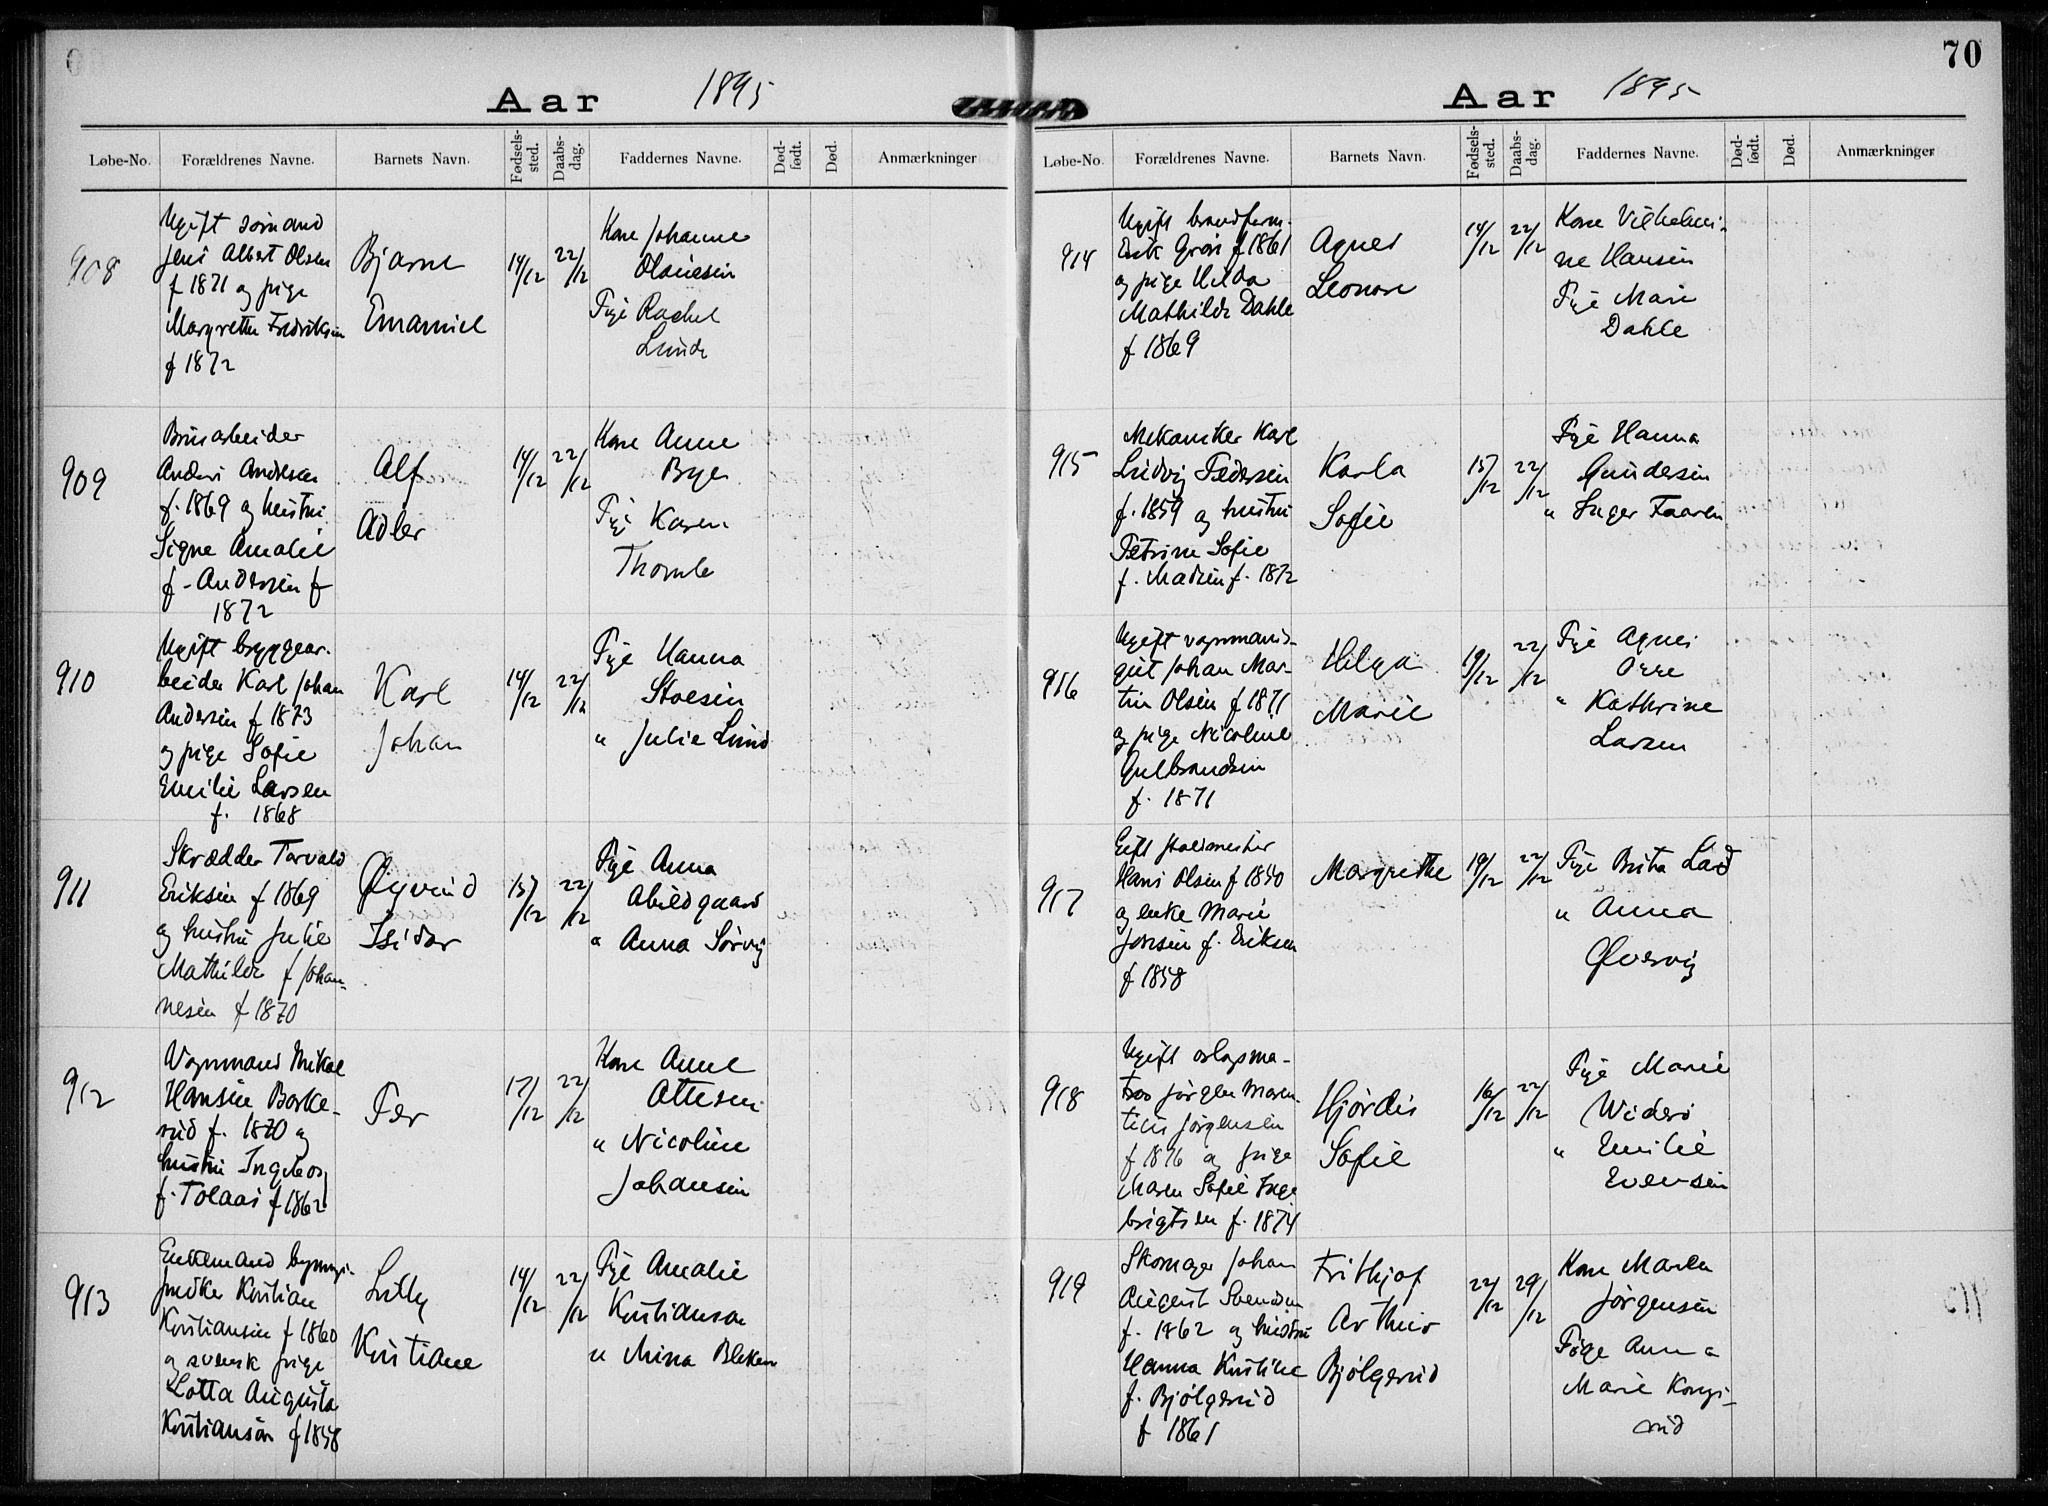 Aar 1895
Løbe-No. Forældrenes Navne. Barnets Navn. Fødsels-sted. Daabs-dag. Faddernes Navne. Død-født. Død. Anmærkninger
908
Ugift sømand
Jens Albert Olsen
f 1871 og pige
Margrethe Fredriksen
f 1872
Bjarne
Emanuel
14/12 22/12
Kone Johanne
Olaussen
Pige Rachel
Lunde
909
Anders Andersen
f. 1869 og hustru
Signe Amalie
f. Andersen f
1872
Alf
Adler
14/12 22/12
Kone Anne
Bye
Pige Karen
910
Ugift bryggear-
beider Karl Johan
Andersen f 1873
og pige Sofie
Emilie Larsen
f. 1868
Karl
Johan
14/12 22/12
Pige Hanna
" Julie Lund
911
Skrædder Torvald
Eriksen f 1869
og hustru Julie
Mathilde f Johan-
nesen f 1870
Øyvind
Isidor
15/12 22/12
Pige Anna
Abildgaard
" Anna Sørvig
912
Vognmand Mikal
Hansen Borke-
rud f. 1870 og
hustru Ingeborg
f. Tolaas f 1862
Per
17/12 22/12
Kone Anne
Ottesen
" Nicoline
Johansen
913
Enkemand bygnings-
snedker Kristian
Kristiansen f 1860
og svensk pige
Lotta Augusta
Kristiansön f 1858
Lilly
Kristiane
14/12 22/12
Pige Amalie
Kristianson
" Mina Bleken
70
Aar 1895
Løbe-No. Forældrenes Navne. Barnets Navn. Fødsels-sted. Daabs-dag. Faddernes Navne. Død-født. Død. Anmærkninger
914
Ugift
Erik f 1861
og pige Hilda
Mathilde Dahle
f 1869
Agnes
Leonore
14/12 22/12
Kone Vilhelmi-
ne Hansen
Pige Marie
Dahle
915
Mekaniker Karl
Ludvig Pedersen
f. 1859 og hustru
Petrine Sofie
f. Madsen f. 1872
Karla
Sofie
15/12 22/12
Pige Hanna
Gundersen
" Inger Faaren
916
Ugift vognmands-
gut Johan Mar-
tin Olsen f 1871
og pige Nicoline
Gulbrandsen
f. 1871
Helga
Marie
19/12 22/12
Pige Agnes
Orre
" Kathrine
Larsen
917
Gift staldmester
Hans Olsen f 1850
og enke Marie
Jonsen f. Eriksen
f 1858
Margrethe
19/12 22/12
Pige Brita Lad
" Anna
Øvervig
918
Ugift orlogsma-
tros Jørgen Maren-
tius Jørgensen
f 1876 og pige
Maren Sofie Inge
brigtsen f. 1874
Hjørdis
Sofie
16/12 22/12
Pige Marie
Widerø
" Emilie
Evensen
919
Skomager Johan
August Svendsen
f. 1862 og hustru
Hanna Kristine
f. Bjølgerud
f 1861
Frithjof
Arthur
Bjølgerud
22/12 29/12
Kone Maren
Jørgensen
Pige Anna
Marie Kongs-
rud